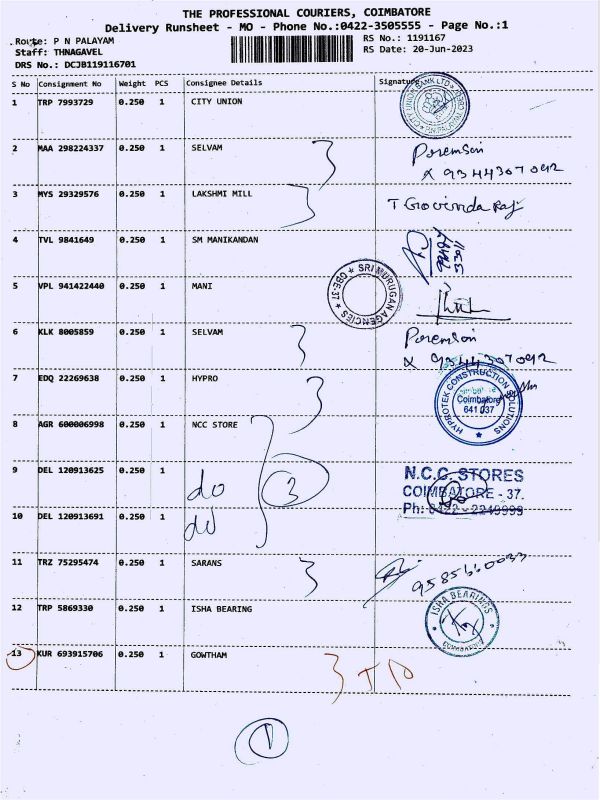 THE PROFESSIONAL COURIERS, COIMBATORE
Delivery Runsheet - MO - Phone No.:0422-3505555 - Page No.:1
Route: P N PALAYAM
RS No.: 1191167
Staff: THNAGAVEL
RS Date: 20-Jun-2023
DRS No.: DCJB119116701
S No Consignment No Weight PCS Consignee Details Signature
1 TRP 7993729 0.250 1 CITY UNION
CITY UNION BANK LTD
2 MAA 298224337 0.250 1 SELVAM 3
9344307092
3 MYS 29329576 0.250 1 LAKSHMI MILL T Govinda Raj
4 TVL 9841649 0.250 1 SM MANIKANDAN
5 VPL 941422440 0.250 1 MANI
SRI MURUGAN AGENCIES ★ CBE-37 ★
6 KLK 8005859 0.250 1 SELVAM 3
9344307092
7 EDQ 22269638 0.250 1 HYPRO 3
HYPROTEK CONSTRUCTION SOLUTIONS
Coimbatore
641 037
8 AGR 600006998 0.250 1 NCC STORE
9 DEL 120913625 0.250 1 do 3
N.C.C. STORES
COIMBATORE - 37.
Ph: 0422 - 2249999
10 DEL 120913691 0.250 1 do
11 TRZ 75295474 0.250 1 SARANS 3
12 TRP 5869330 0.250 1 ISHA BEARING
ISHA BEARINGS
13 KUR 693915706 0.250 1 GOWTHAM 3
1